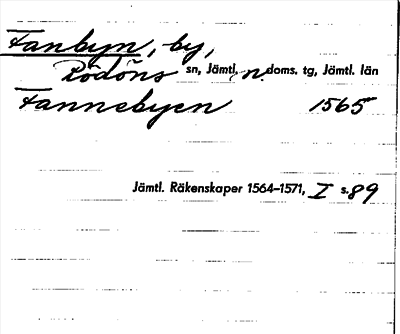 Fanbyn, by,
Rödöns sn, Jämtl. n. doms. tg, Jämtl. län
Fannebyen 1565
Jämtl. Räkenskaper 1564-1571, I s. 89